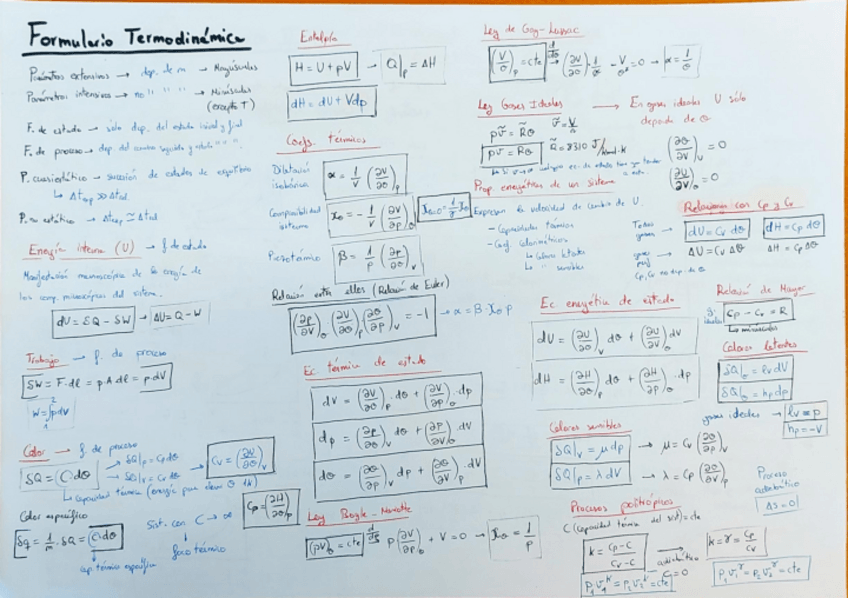 Formulario Termodinámica
Parámetros extensivos → dep. de m → Mayúsculas
Parámetros intensivos → no " " " → Minúsculas
(excepto T)
F. de estado → sólo dep. del estado inicial y final
F. de proceso → dep del camino seguido y estado " " ".
P. cuasiestático → sucesión de estados de equilibrio
↳ Δtexp >> Δtrel
P. no estático → Δtexp ≃ Δtrel
Energía interna (U) → f. de estado
Manifestación macroscópica de la energía de
los comp. microscópicos del sistema.
dU = δQ - δW → ΔU = Q - W
Trabajo → f. de proceso
δW = F·dl = p·A·dl = p·dV
W = ∫₁² p dV
Calor → f. de proceso
δQ = C·dθ → δQ|p = Cp dθ
→ δQ|v = Cv dθ
→ Cv = (∂U/∂θ)v
↳ capacidad térmica (energía para elevar θ 1K)
Cp = (∂H/∂θ)p
Calor específico
δq = 1/m · δQ = c·dθ
cap. térmica específica
Sist. con C → ∞
foco térmico
Entalpía
H = U + pV → Q|p = ΔH
dH = dU + Vdp
Coefs. térmicos
Dilatación isobárica α = 1/V (∂V/∂θ)p
Compresibilidad isoterma χθ = - 1/V (∂V/∂p)θ
Piezotérmico β = 1/p (∂p/∂θ)v
Relación entre ellos (Relación de Euler)
(∂p/∂V)θ (∂V/∂θ)p (∂θ/∂p)v = -1 → α = β·χθ·p
Ec. térmica de estado
dV = (∂V/∂θ)p · dθ + (∂V/∂p)θ · dp
dp = (∂p/∂θ)v dθ + (∂p/∂V)θ dV
dθ = (∂θ/∂p)v dp + (∂θ/∂V)p · dV
Ley Boyle - Mariotte
(pV)θ = cte d/dp p(∂V/∂p)θ + V = 0 → χθ = 1/p
Ley de Gay-Lussac
(V/θ)p = cte d/dθ → (∂V/∂θ)p 1/θ - V/θ² = 0 → α = 1/θ
Ley Gases Ideales → En gases ideales U sólo
depende de θ
pṽ = R̃θ
pv = Rθ
R̃ = 8310 J/kmol·K
(∂θ/∂V)U = 0
(∂U/∂V)θ = 0
Prop. energéticas de un sistema
Expresan la velocidad de cambio de U.
- Capacidades térmicas
- Coef. calorimétricos
↳ Calores latentes
↳ " sensibles
Relaciones con Cp y Cv
Todos gases → dU = Cv dθ dH = Cp dθ
gases perf. → ΔU = Cv Δθ ΔH = Cp Δθ
Cp, Cv no dep. de θ
Ec. energética de estado
dU = (∂U/∂θ)v dθ + (∂U/∂V)θ dV
dH = (∂H/∂θ)p dθ + (∂H/∂p)θ · dp
Relación de Mayer
g. ideales cp - cv = R
↳ minúsculas
Calores latentes
δQ|θ = lv dV
δQ|θ = hp dp
gases ideales → lv = p
hp = -V
Calores sensibles
δQ|v = μ dp → μ = Cv (∂θ/∂p)v
δQ|p = λ dV → λ = Cp (∂θ/∂V)p
Proceso adiabático
Δs = 0
Procesos politrópicos
C (capacidad térmica del sist) = cte
k = cp - c / cv - c → adiabático C = 0 k = γ = cp/cv
p₁v₁ᵏ = p₂v₂ᵏ = cte p₁v₁^γ = p₂v₂^γ = cte